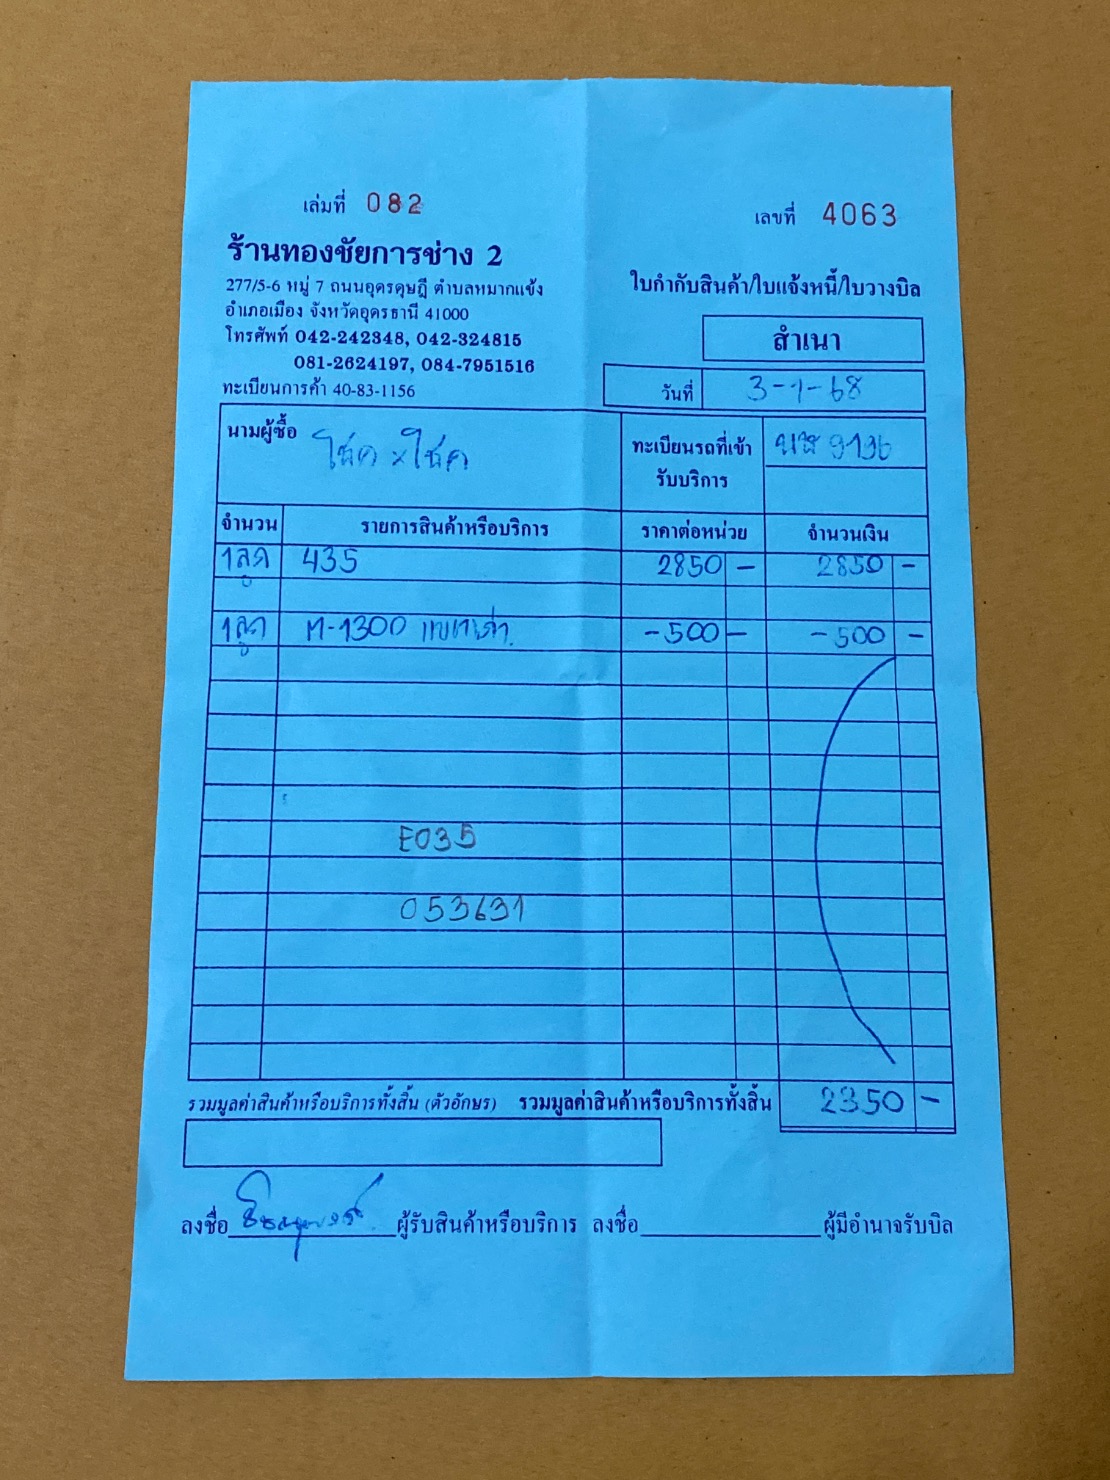 เล่มที่ 082
เลขที่ 4063
ร้านทองชัยการช่าง 2
277/5-6 หมู่ 7 ถนนอุดรดุษฎี ตำบลหมากแข้ง
อำเภอเมือง จังหวัดอุดรธานี 41000
โทรศัพท์ 042-242348, 042-324815
081-2624197, 084-7951516
ทะเบียนการค้า 40-83-1156
ใบกำกับสินค้า/ใบแจ้งหนี้/ใบวางบิล
สำเนา
วันที่ 3-1-68
นามผู้ซื้อ โชค x โชค
ทะเบียนรถที่เข้า
รับบริการ
9136
จำนวน รายการสินค้าหรือบริการ ราคาต่อหน่วย จำนวนเงิน
1ลูก 435 2850 - 2850 -
1ลูก M-1300 แบตเก่า -500 - -500 -
E035
053631
รวมมูลค่าสินค้าหรือบริการทั้งสิ้น (ตัวอักษร) รวมมูลค่าสินค้าหรือบริการทั้งสิ้น 2350 -
ลงชื่อ ผู้รับสินค้าหรือบริการ ลงชื่อ ผู้มีอำนาจรับบิล